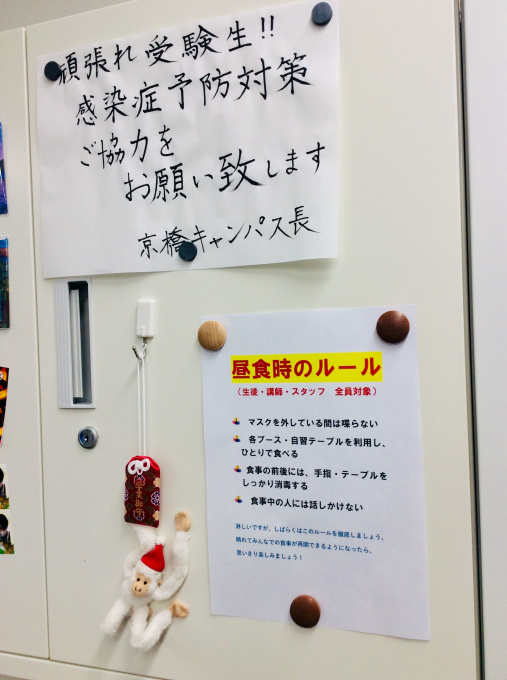 頑張れ受験生!!
感染症予防対策
ご協力を
お願い致します
京橋キャンパス長
昼食時のルール
(生徒・講師・スタッフ 全員対象)
マスクを外している間は喋らない
各ブース・自習テーブルを利用し、
ひとりで食べる
食事の前後には、手指・テーブルを
しっかり消毒する
食事中の人には話しかけない
淋しいですが、しばらくはこのルールを徹底しましょう。
晴れてみんなでの食事が再開できるようになったら、
思いきり楽しみましょう!